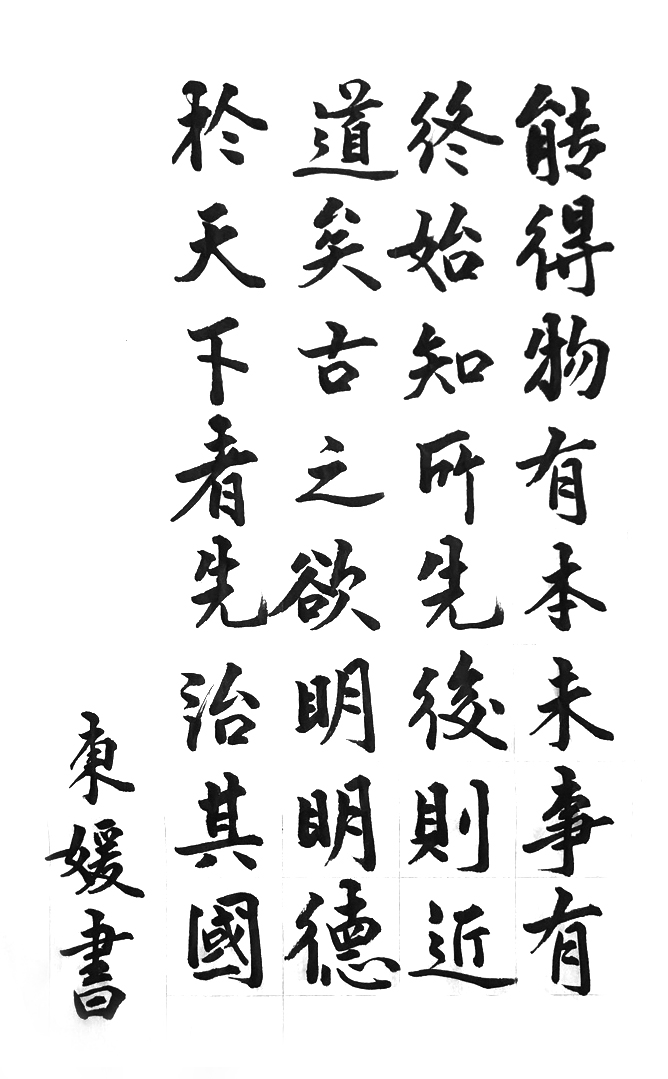 能得物有本未事有
終始知所先後則近
道矣古之欲明明德
於天下者先治其國
媛書